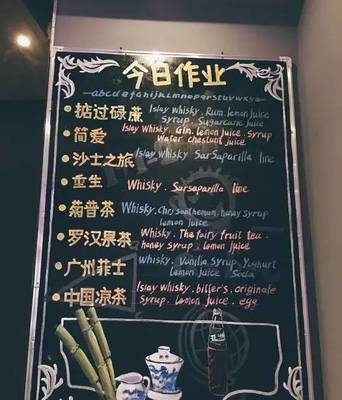 今日作业
abcdefghijklmnopqrstuvwxyz
掂过碌蔗 Islay whisky. Rum. lemon juice
Syrup. Sugarcane juice
简爱 Islay whisky. Gin. lemon juice. syrup
Water chestunt juice
沙士之旅 Islay whisky SarSaparilla line
重生 Whisky. Sarsaparilla line
菊普茶 Whisky. Chrysanthemum. honey syrup
lemon juice
罗汉果茶 Whisky. The fairy fruit tea.
honey syrup lemon juice
广州菲士 Whisky. Vanilla Syrup. Y.ghurt
lemon juice Soda
中国凉茶 Islay whisky. biller's. originale
Syrup. lemon juice. egg